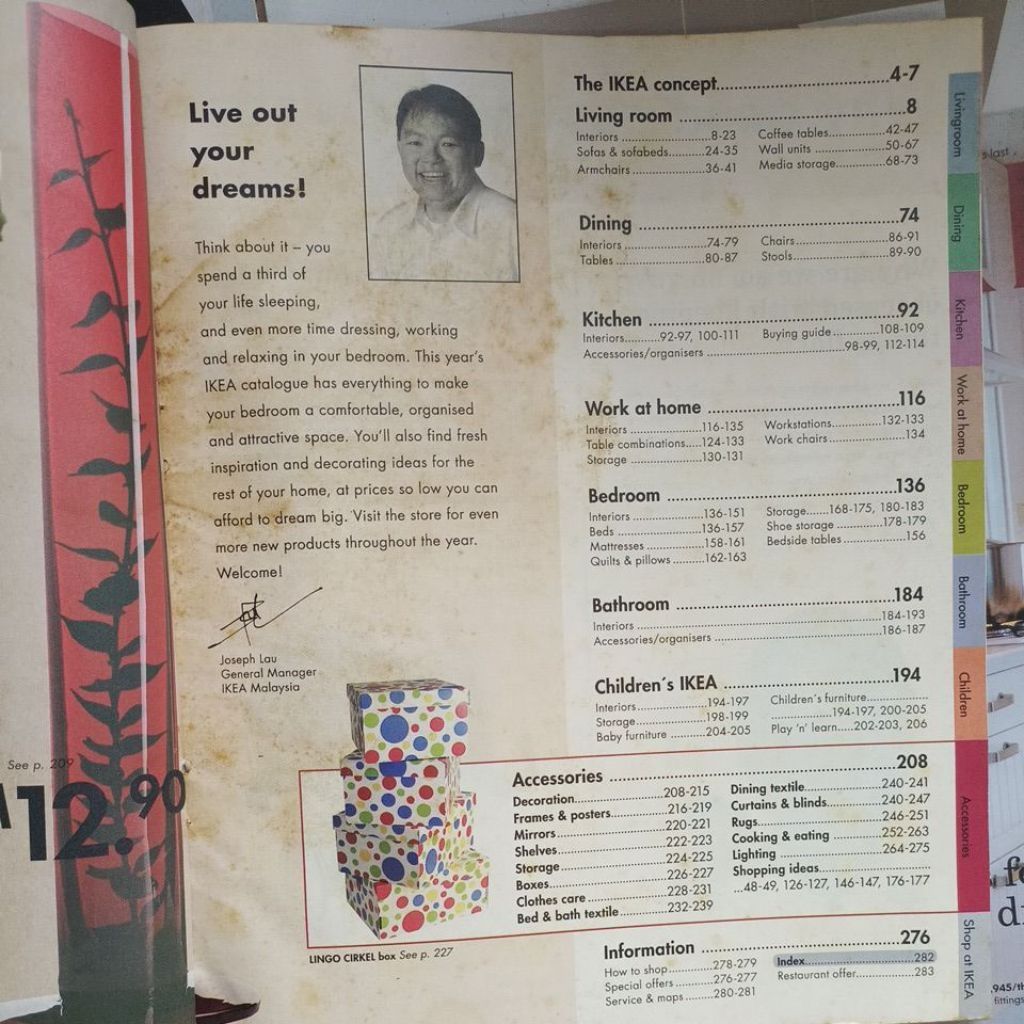 See p. 209
12.90
Live out
your
dreams!
Think about it – you
spend a third of
your life sleeping,
and even more time dressing, working
and relaxing in your bedroom. This year's
IKEA catalogue has everything to make
your bedroom a comfortable, organised
and attractive space. You'll also find fresh
inspiration and decorating ideas for the
rest of your home, at prices so low you can
afford to dream big. Visit the store for even
more new products throughout the year.
Welcome!
Joseph Lau
General Manager
IKEA Malaysia
LINGO CIRKEL box See p. 227
The IKEA concept..........4-7
Living room ..........8
Interiors ..........8-23
Sofas & sofabeds..........24-35
Armchairs ..........36-41
Coffee tables..........42-47
Wall units ..........50-67
Media storage..........68-73
Dining ..........74
Interiors ..........74-79
Tables ..........80-87
Chairs..........86-91
Stools..........89-90
Kitchen ..........92
Interiors..........92-97, 100-111
Buying guide ..........108-109
Accessories/organisers ..........98-99, 112-114
Work at home ..........116
Interiors ..........116-135
Table combinations.....124-133
Storage ..........130-131
Workstations..........132-133
Work chairs..........134
Bedroom ..........136
Interiors ..........136-151
Beds ..........136-157
Mattresses ..........158-161
Quilts & pillows ..........162-163
Storage.......168-175, 180-183
Shoe storage ..........178-179
Bedside tables ..........156
Bathroom ..........184
Interiors ..........184-193
Accessories/organisers ..........186-187
Children´s IKEA ..........194
Interiors..........194-197
Storage..........198-199
Baby furniture ..........204-205
Children´s furniture..........
..........194-197, 200-205
Play 'n' learn.....202-203, 206
Accessories ..........208
Decoration..........208-215
Frames & posters..........216-219
Mirrors..........220-221
Shelves..........222-223
Storage..........224-225
Boxes..........226-227
Clothes care ..........228-231
Bed & bath textile..........232-239
Dining textile..........240-241
Curtains & blinds..........240-247
Rugs..........246-251
Cooking & eating ..........252-263
Lighting ..........264-275
Shopping ideas..........
...48-49, 126-127, 146-147, 176-177
Information ..........276
How to shop..........278-279
Special offers ..........276-277
Service & maps..........280-281
Index..........282
Restaurant offer..........283
Livingroom
Dining
Kitchen
Work at home
Bedroom
Bathroom
Children
Accessories
Shop at IKEA
last
fittings